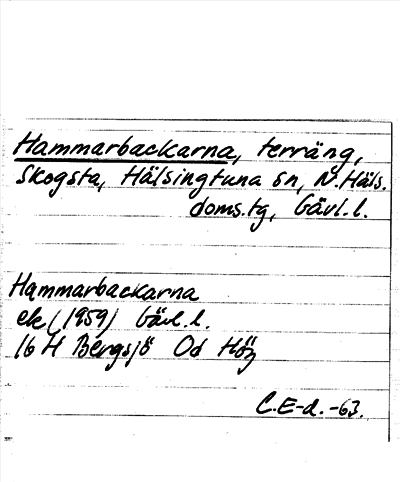 Hammarbackarna, terräng,
Skogsta, Hälsingtuna sn, N. Häls.
doms.tg, Gävl.l.
Hammarbackarna
ek (1959) Gävl.l.
16 H Bergsjö Od Hög
C.E-d. -63.